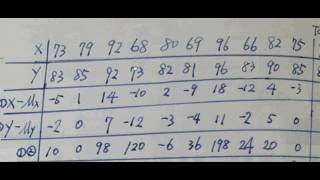 X 73 79 92 68 80 69 96 66 82 75
Y 83 85 92 73 82 81 96 83 90 85
①X-Mx -5 1 14 -10 2 -9 18 -12 4 -3
②Y-My -2 0 7 -12 -3 -4 11 -2 5 0
①② 10 0 98 120 -6 36 198 24 20 0